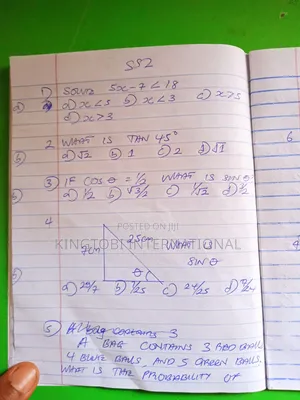 SS2
1) SOLVE 5x - 7 < 18
a) x < 5 b) x < 3 c) x > 5
d) x > 3
2 WHAT IS TAN 45°
a) √2 b) 1 c) 2 d) √1
3) IF COS θ = 1/2 WHAT IS SIN θ
a) 1/2 b) √3/2 c) 1/√2 d)
4
POSTED ON JIJI
7cm 25cm WHAT IS
KINGTOBI INTERNATIONAL
θ SIN θ
a) 25/7 b) 7/25 c) 24/25 d) 7/24
5) A BAG CONTAINS 3
A BAG CONTAINS 3 RED BALLS,
4 BLUE BALLS, AND 5 GREEN BALLS.
WHAT IS THE PROBABILITY OF